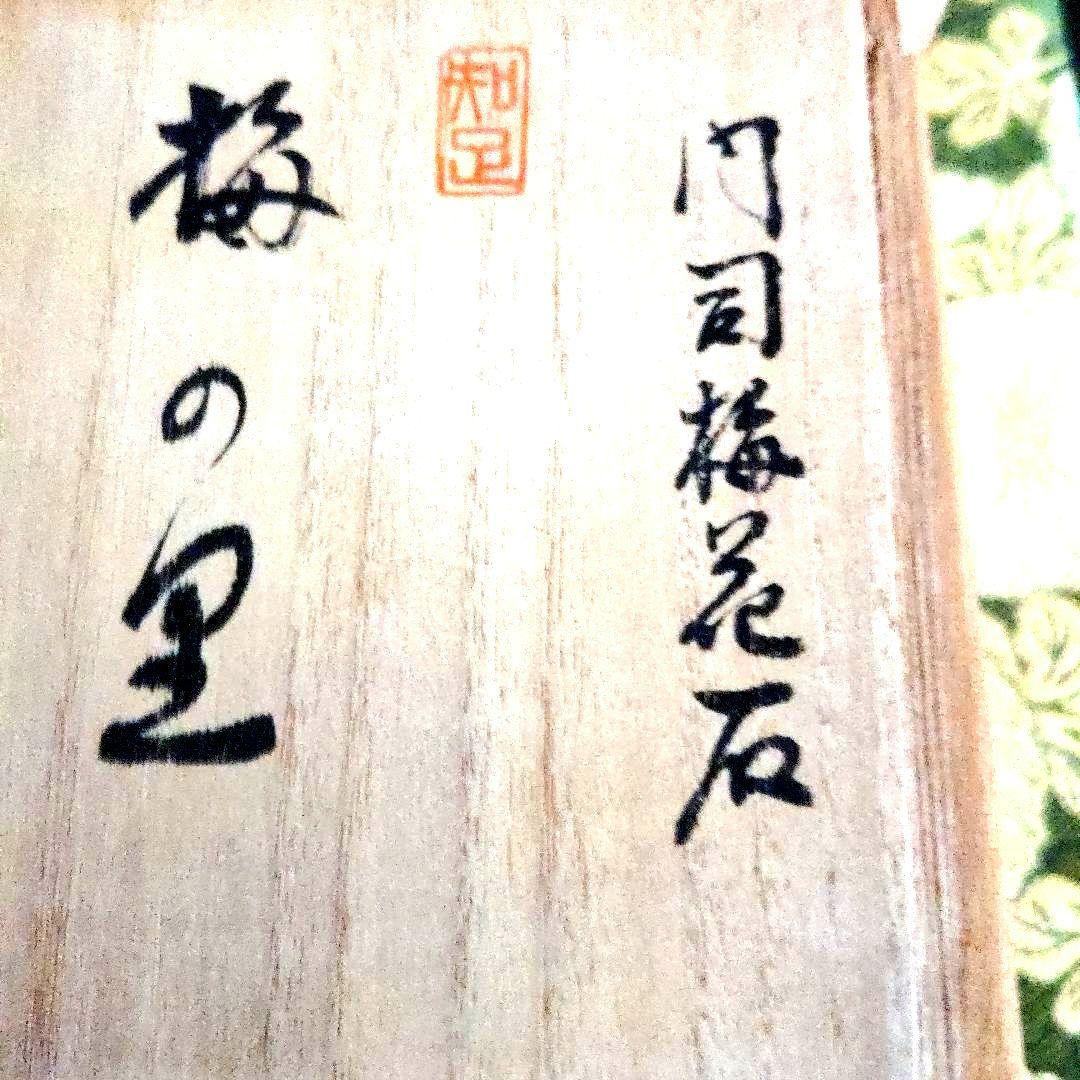 門司梅花石
知足
梅の里